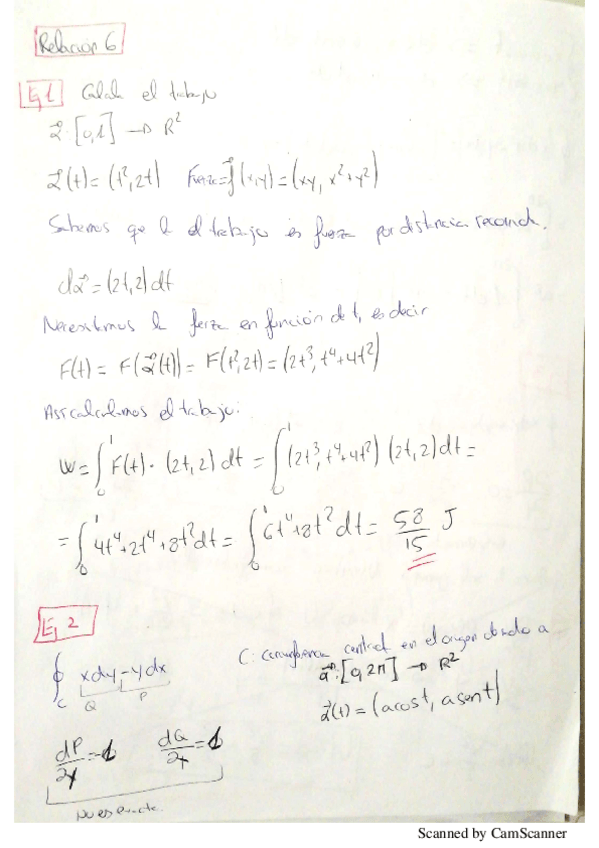 Relación 6
Ej 1 Calcula el trabajo
α⃗: [0,1] → R²
α⃗(t) = (t², 2t) Fuerza = f⃗(x,y) = (xy, x²+y²)
Sabemos que el trabajo es fuerza por distancia recorrida.
dα⃗ = (2t, 2) dt
Necesitamos la fuerza en función de t, es decir
F(t) = F(α⃗(t)) = F(t², 2t) = (2t³, t⁴+4t²)
Así calculamos el trabajo:
W = ∫₀¹ F(t) · (2t, 2) dt = ∫₀¹ (2t³, t⁴+4t²) (2t, 2) dt =
= ∫₀¹ 4t⁴+2t⁴+8t² dt = ∫₀¹ 6t⁴+8t² dt = 58/15 J
Ej 2
C: circunferencia en el origen de radio a
∮_C xdy - ydx
Q P
α⃗: [0, 2π] → R²
α⃗(t) = (a cos t, a sen t)
dP/2y = -1 dQ/2x = 1
No es exacta
Scanned by CamScanner